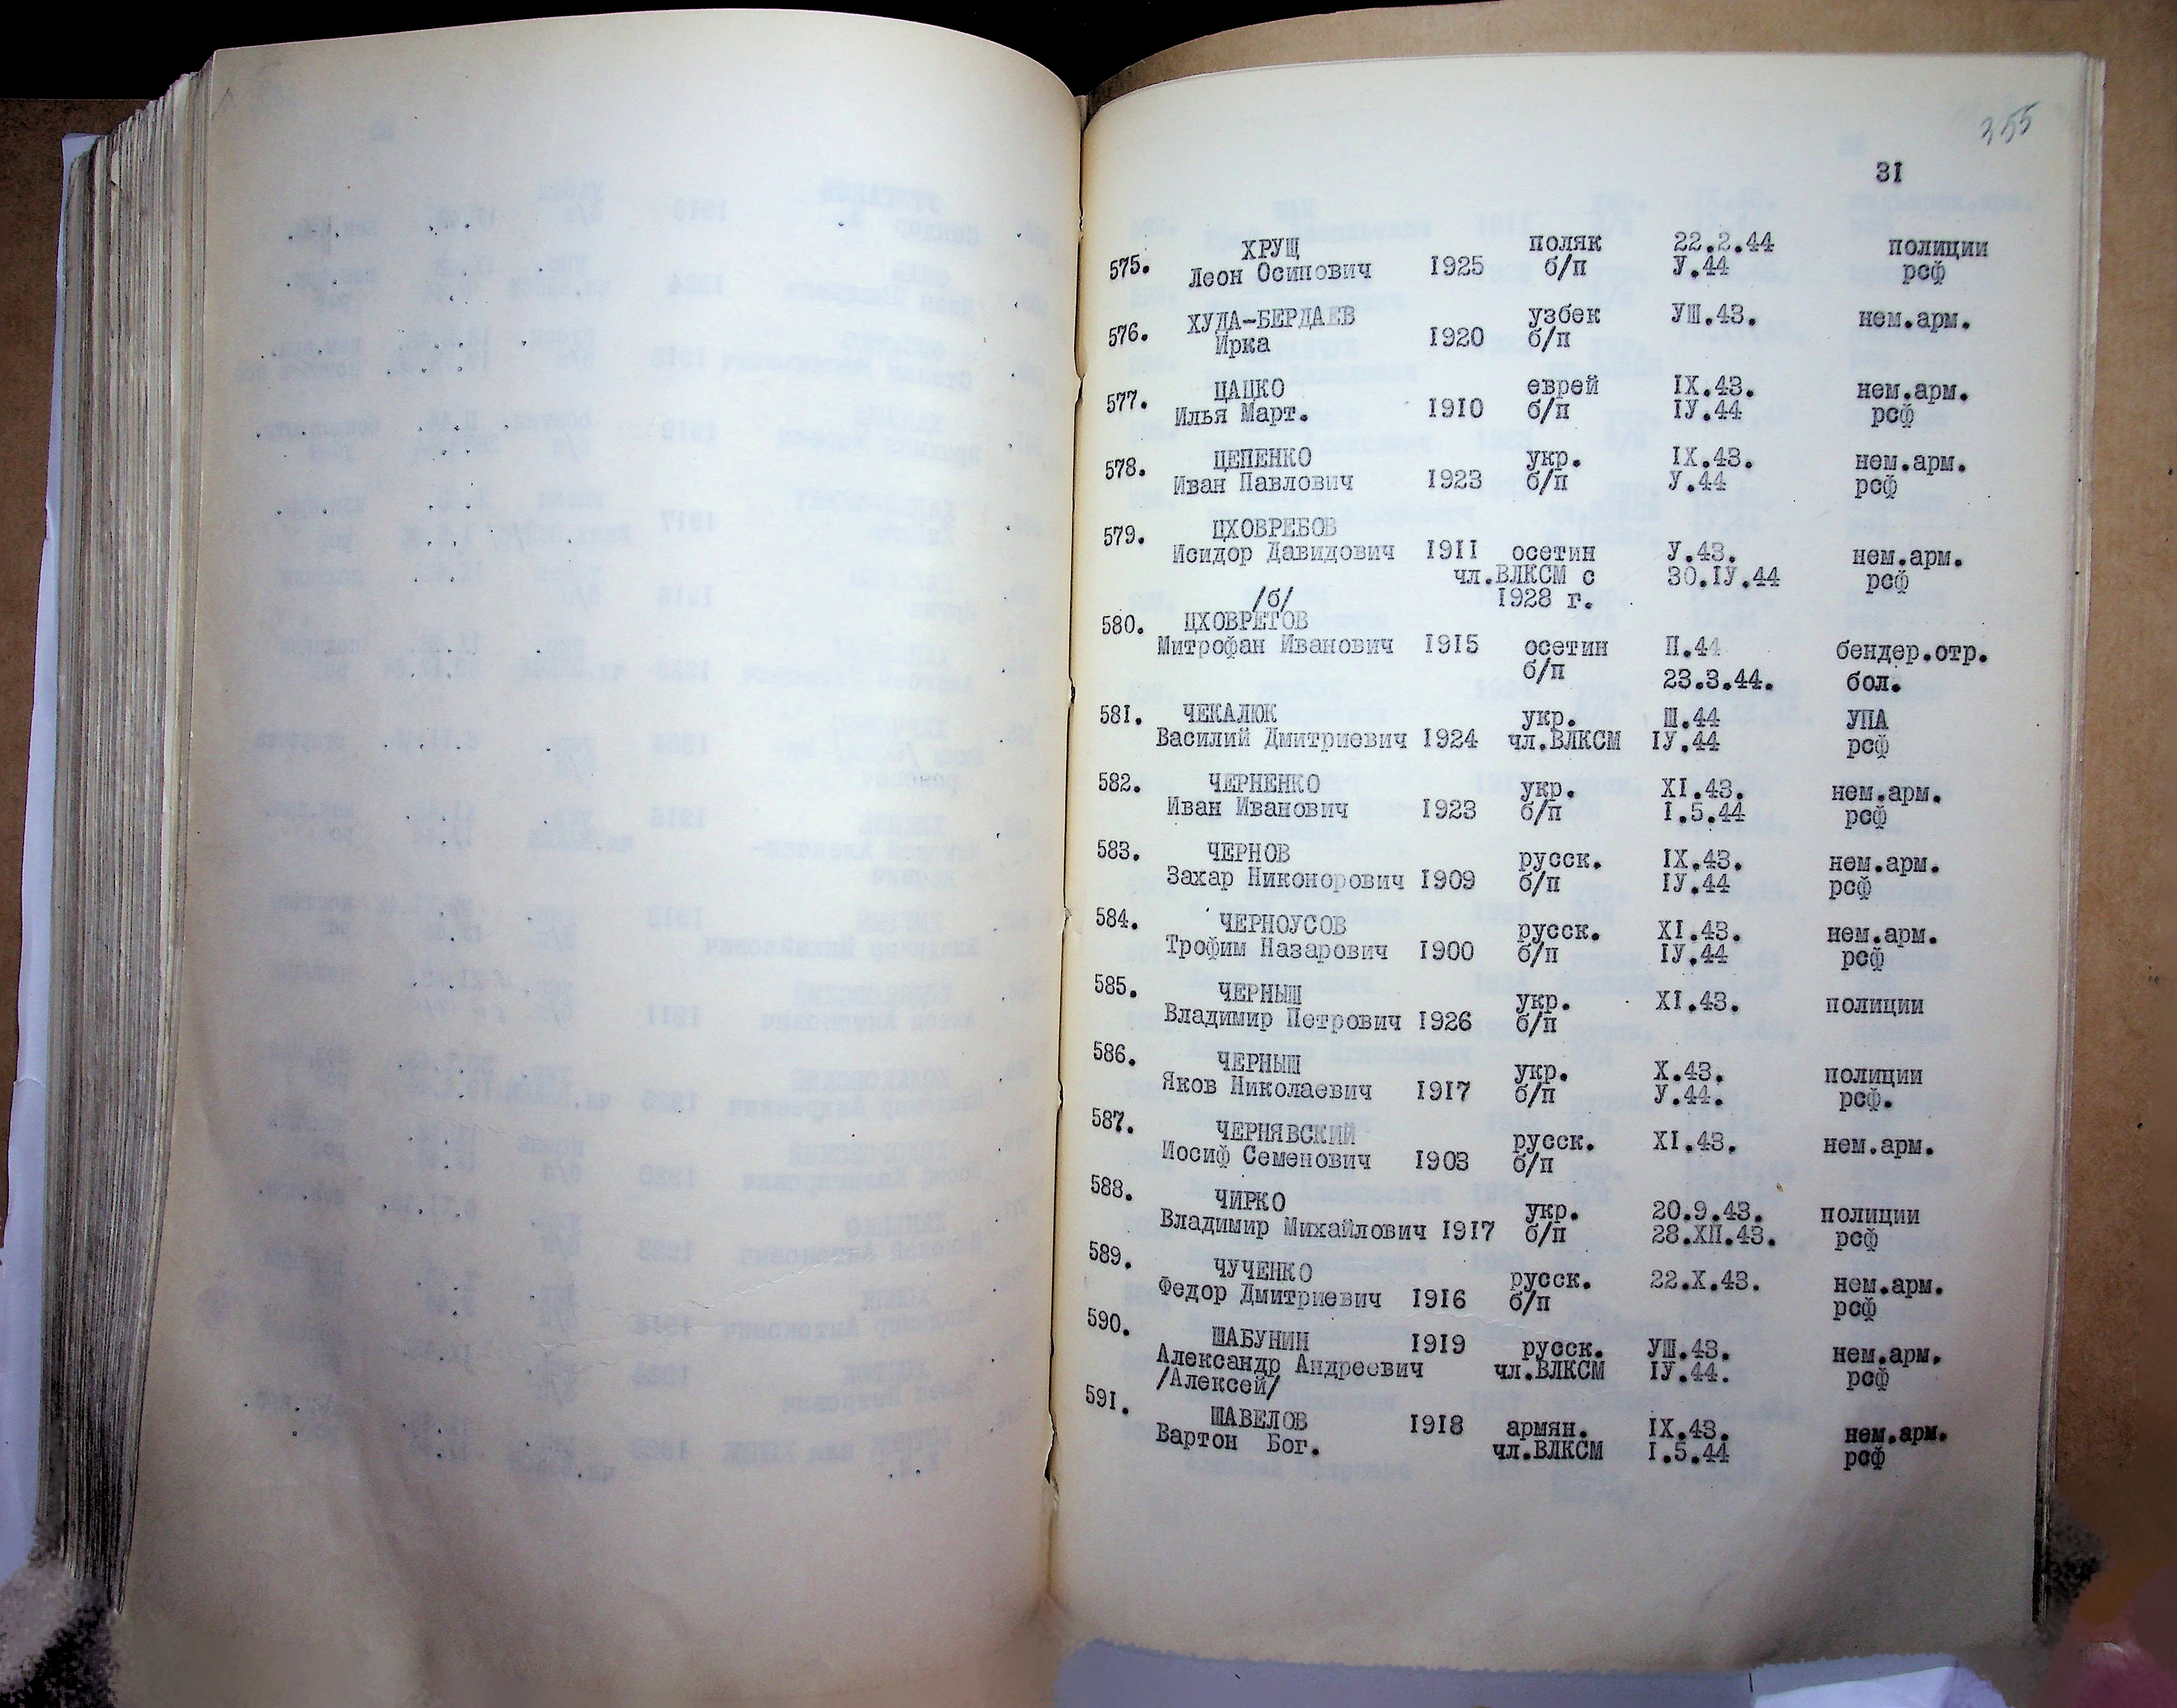 355
31
ХРУЩ поляк 22.2.44 полиции
575. Леон Осипович 1925 б/п У.44 рсф
ХУДА-БЕРДАЕВ узбек УШ.43. нем.арм.
576. Ирка 1920 б/п
ЦАЦКО еврей IX.43. нем.арм.
577. Илья Март. 1910 б/п IУ.44 рсф
ЦЕПЕНКО укр. IX.43. нем.арм.
578. Иван Павлович 1923 б/п У.44 рсф
579. ЦХОВРЕБОВ
Исидор Давидович 1911 осетин У.43. нем.арм.
чл.ВЛКСМ с 30.IУ.44 рсф
/б/ 1928 г.
580. ЦХОВРЕТОВ
Митрофан Иванович 1915 осетин П.44 бендер.отр.
б/п 23.3.44. бол.
581. ЧЕКАЛЮК укр. Ш.44 УПА
Василий Дмитриевич 1924 чл.ВЛКСМ IУ.44 рсф
582. ЧЕРНЕНКО укр. XI.43. нем.арм.
Иван Иванович 1923 б/п I.5.44 рсф
583. ЧЕРНОВ русск. IX.43. нем.арм.
Захар Никонорович 1909 б/п IУ.44 рсф
584. ЧЕРНОУСОВ русск. XI.43. нем.арм.
Трофим Назарович 1900 б/п IУ.44 рсф
585. ЧЕРНЫШ укр. XI.43. полиции
Владимир Петрович 1926 б/п
586. ЧЕРНЫШ укр. X.43. полиции
Яков Николаевич 1917 б/п У.44. рсф.
587. ЧЕРНЯВСКИЙ русск. XI.43. нем.арм.
Иосиф Семенович 1903 б/п
588. ЧИРКО укр. 20.9.43. полиции
Владимир Михайлович 1917 б/п 28.ХП.43. рсф
589. ЧУЧЕНКО русск. 22.X.43. нем.арм.
Федор Дмитриевич 1916 б/п рсф
590. ШАБУНИН 1919 русск. УШ.43. нем.арм.
Александр Андреевич чл.ВЛКСМ IУ.44. рсф
/Алексей/
591. ШАВЕЛОВ 1918 армян. IX.43. нем.арм.
Вартон Бог. чл.ВЛКСМ I.5.44 рсф